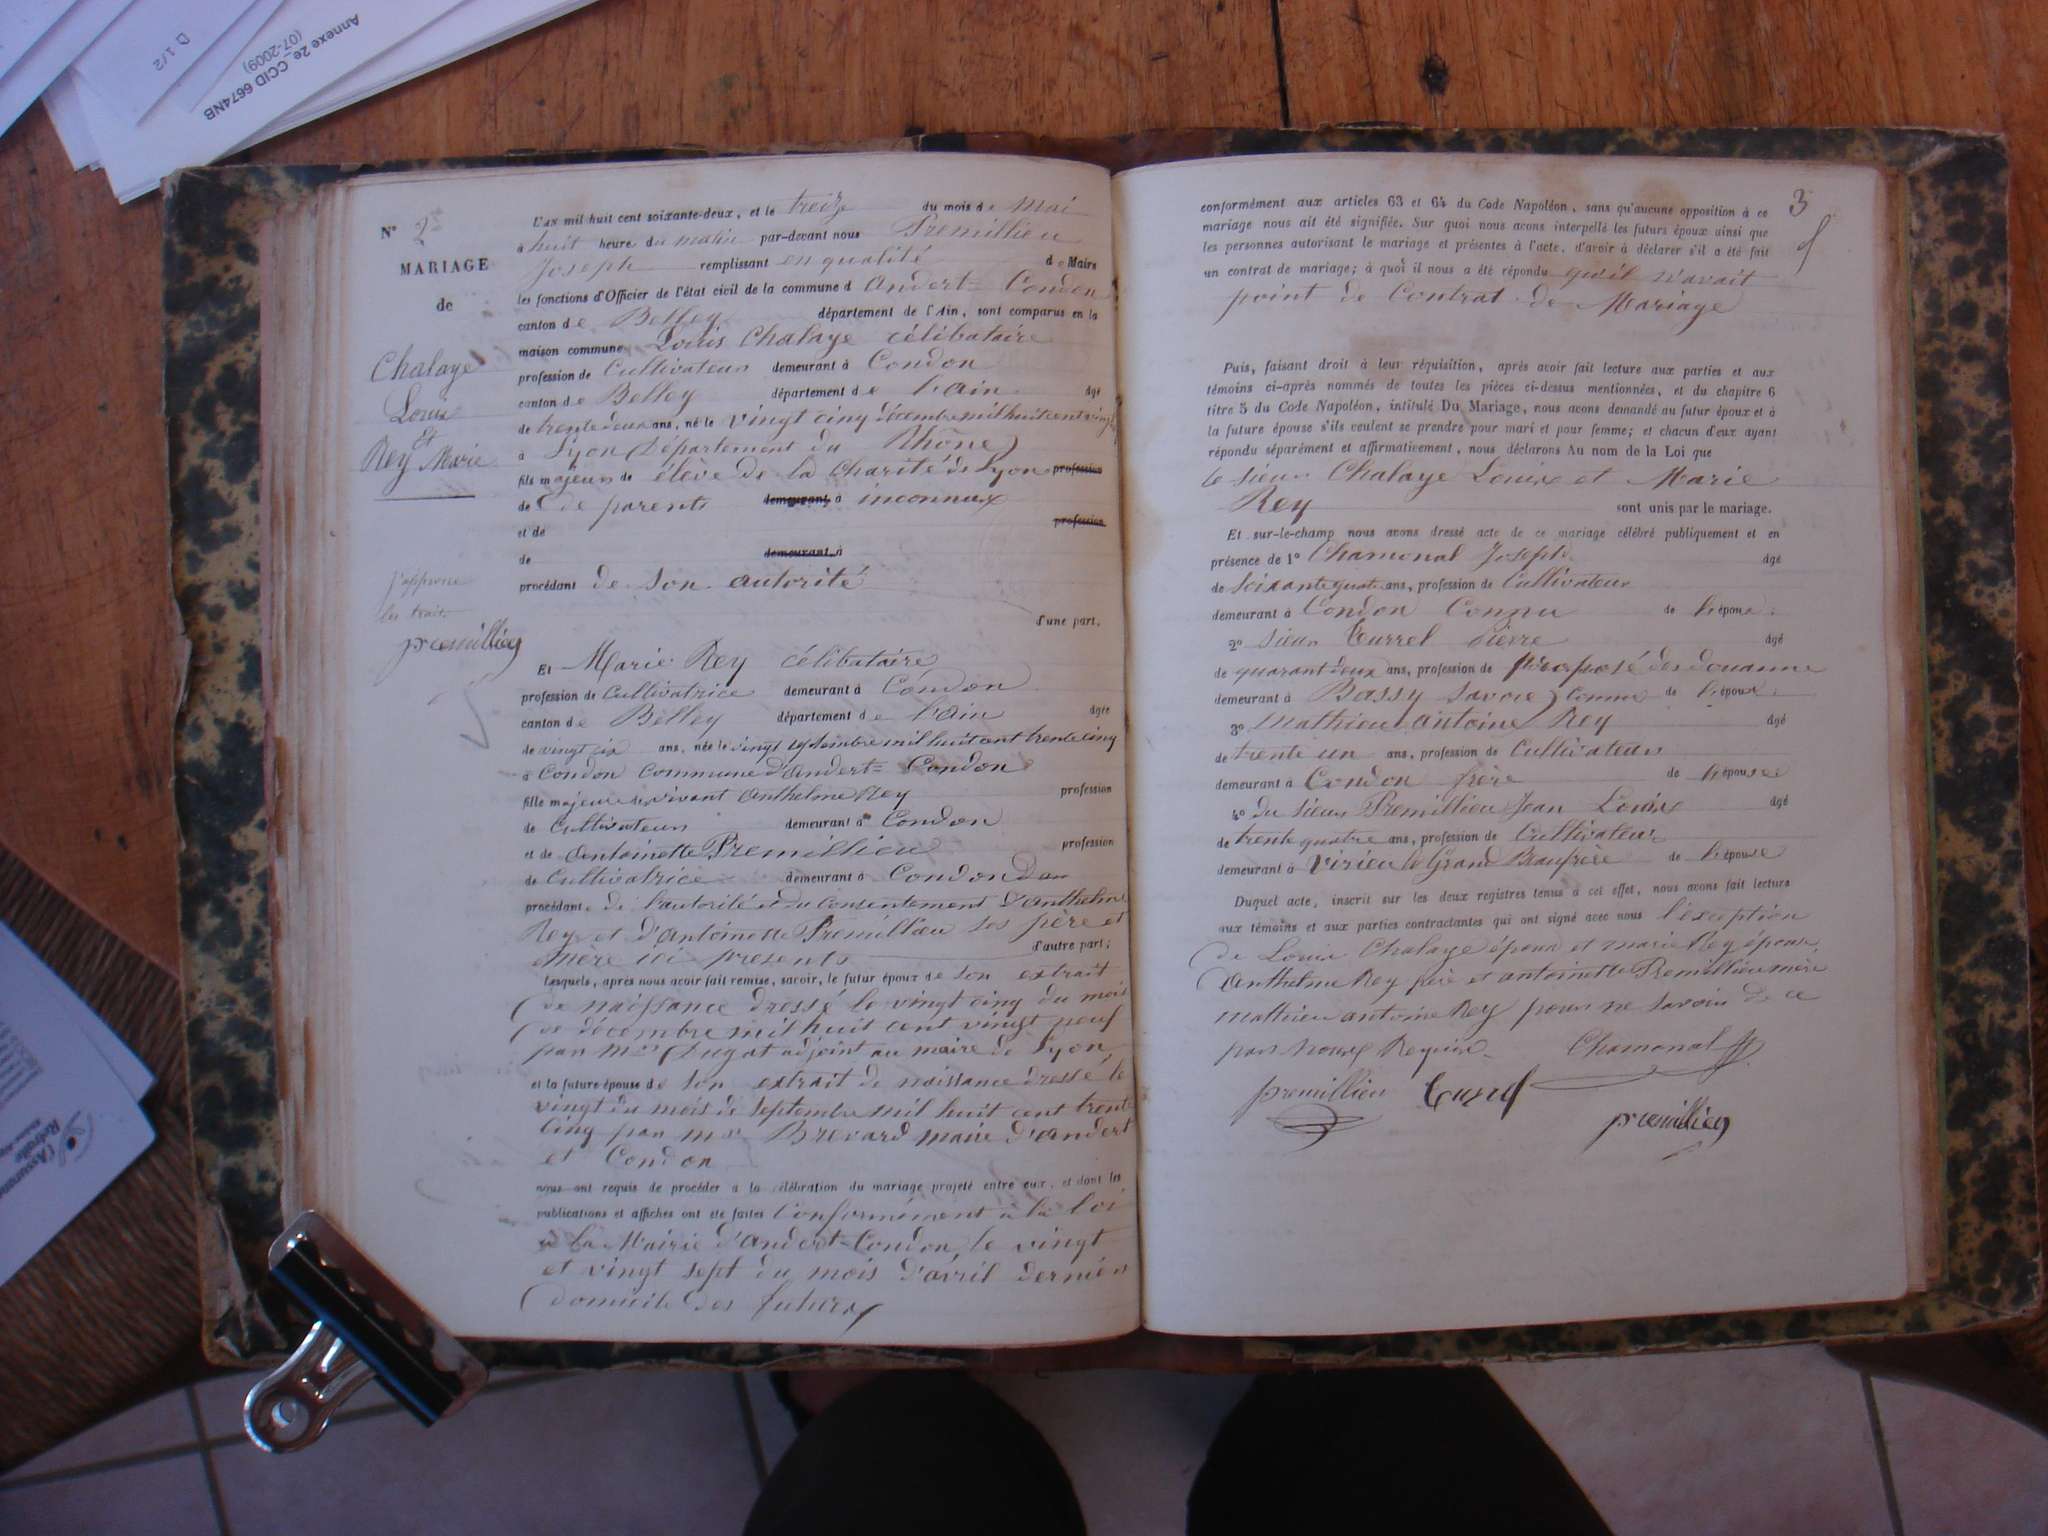 Annexe 2e_CCID 6674NB
(07-2009)
D 1/2
N° 2
MARIAGE
de
Chalaye
Louis
et
Rey Marie
J'approuve
les traits
premillieu
L'AN mil huit cent soixante-deux, et le treize du mois de Mai
à huit heure du matin par-devant nous Premillieu
Joseph remplissant en qualité de Maire
les fonctions d'Officier de l'état civil de la commune d Andert-Condon
canton de Belley département de l'Ain, sont comparus en la
maison commune Louis Chalaye célibataire
profession de Cultivateur demeurant à Condon
canton de Belley département de l'Ain âgé
de trente deux ans, né le vingt cinq décembre mil huit cent vingt
à Lyon Département du Rhône
fils majeur de élève de la Charité de Lyon profession
de de parents demeurant à inconnux
et de profession
de demeurant à
procédant de son autorité
d'une part,
Et Marie Rey célibataire
profession de Cultivatrice demeurant à Condon
canton de Belley département de l'Ain âgée
de vingt six ans, née le vingt septembre mil huit cent trente cinq
à Condon Commune d'Andert-Condon
fille majeure de vivant Anthelme Rey profession
de Cultivateur demeurant à Condon
et de Antoinette Premillieu profession
de Cultivatrice demeurant à Condon
procédant de l'autorité et du consentement d'Anthelme
Rey et d'Antoinette Premillieu ses père et
mère ici présents d'autre part;
Lesquels, après nous avoir fait remise, savoir, le futur époux de son extrait
de naissance dressé le vingt cinq du mois
de décembre mil huit cent vingt neuf
par Mr Dugat adjoint au maire de Lyon
et la future épouse de son extrait de naissance dressé le
vingt du mois de septembre mil huit cent trente
cinq par Mr Brevard maire d'andert
et Condon
nous ont requis de procéder à la célébration du mariage projeté entre eux, et dont les
publications et affiches ont été faites Conformément à la loi
à la Mairie d'andert-Condon, le vingt
et vingt sept du mois d'avril dernier
domicile des futurs
3
conformément aux articles 63 et 64 du Code Napoléon, sans qu'aucune opposition à ce
mariage nous ait été signifiée. Sur quoi nous avons interpellé les futurs époux ainsi que
les personnes autorisant le mariage et présentes à l'acte, d'avoir à déclarer s'il a été fait
un contrat de mariage; à quoi il nous a été répondu qu'il n'avait
point de Contrat de Mariage
Puis, faisant droit à leur réquisition, après avoir fait lecture aux parties et aux
témoins ci-après nommés de toutes les pièces ci-dessus mentionnées, et du chapitre 6
titre 5 du Code Napoléon, intitulé Du Mariage, nous avons demandé au futur époux et à
la future épouse s'ils veulent se prendre pour mari et pour femme; et chacun d'eux ayant
répondu séparément et affirmativement, nous déclarons Au nom de la Loi que
le sieur Chalaye Louis et Marie
Rey sont unis par le mariage.
Et sur-le-champ nous avons dressé acte de ce mariage célébré publiquement et en
présence de 1° Chamonal Joseph âgé
de soixante quatre ans, profession de Cultivateur
demeurant à Condon Connu de l'époux
2° sieur Turrel Pierre âgé
de quarant deux ans, profession de préposé des douanne
demeurant à Bassy Savoie Connu de l'époux
3° Mathieu antoine Rey âgé
de trente un ans, profession de Cultivateur
demeurant à Condon frère de l'épouse
4° du sieur Premillieu Jean Louis âgé
de trente quatre ans, profession de Cultivateur
demeurant à Virieu le Grand Beaufrère de l'épouse
Duquel acte, inscrit sur les deux registres tenus à cet effet, nous avons fait lecture
aux témoins et aux parties contractantes qui ont signé avec nous l'exception
de Louis Chalaye époux et marie Rey épouse
Anthelme Rey père et antoinette Premillieu mère
Mathieu antoine Rey pour ne savoir de ce
par nous Requis
Chamonal
premillieu Turrel
premillieu